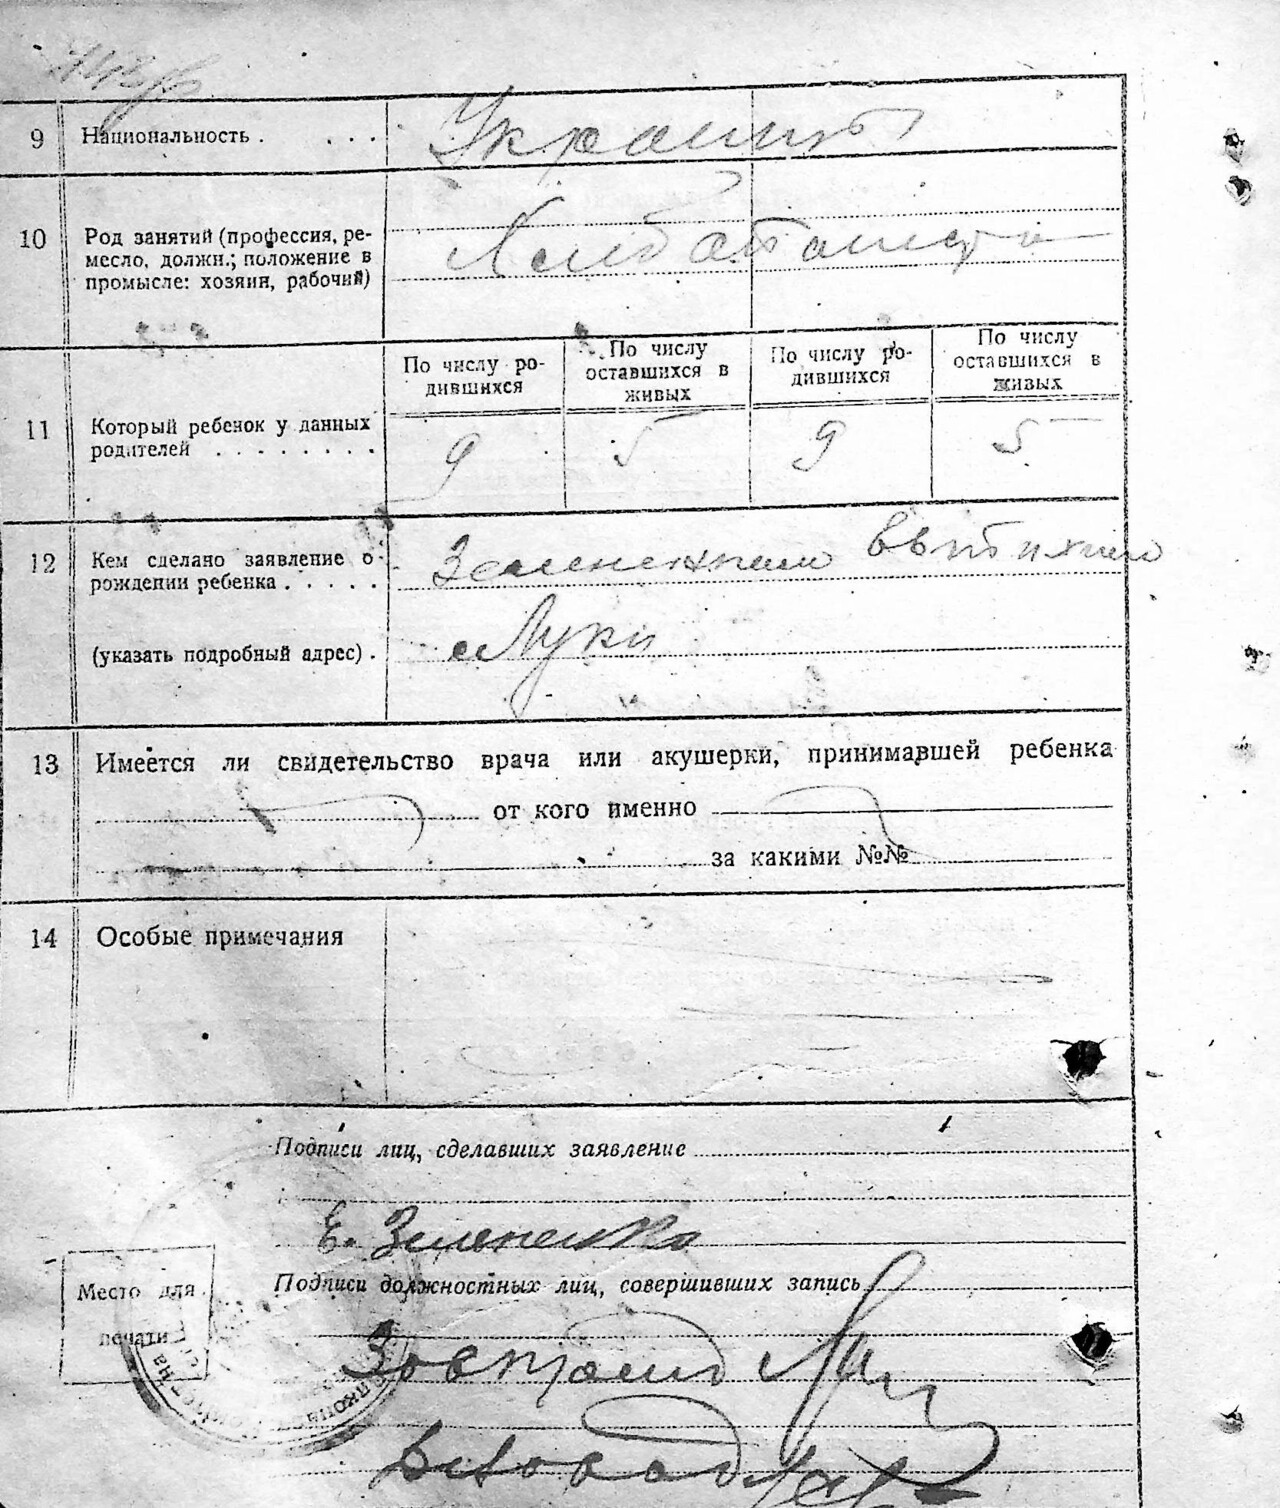 9 Национальность . . . . Украинцы
10 Род занятий (профессия, ре-
месло, должн.; положение в
промысле: хозяин, рабочий)
По числу ро-
дившихся
По числу
оставшихся в
живых
По числу ро-
дившихся
По числу
оставшихся в
живых
11 Который ребенок у данных
родителей . . . . . . . .
9 5 9 5
12 Кем сделано заявление о
рождении ребенка . . . . .
(указать подробный адрес) . с Луки
13 Имеется ли свидетельство врача или акушерки, принимавшей ребенка
от кого именно
за какими №№
14 Особые примечания
Подписи лиц, сделавших заявление
Е. Зелененко
Подписи должностных лиц, совершивших запись
Место для
печати